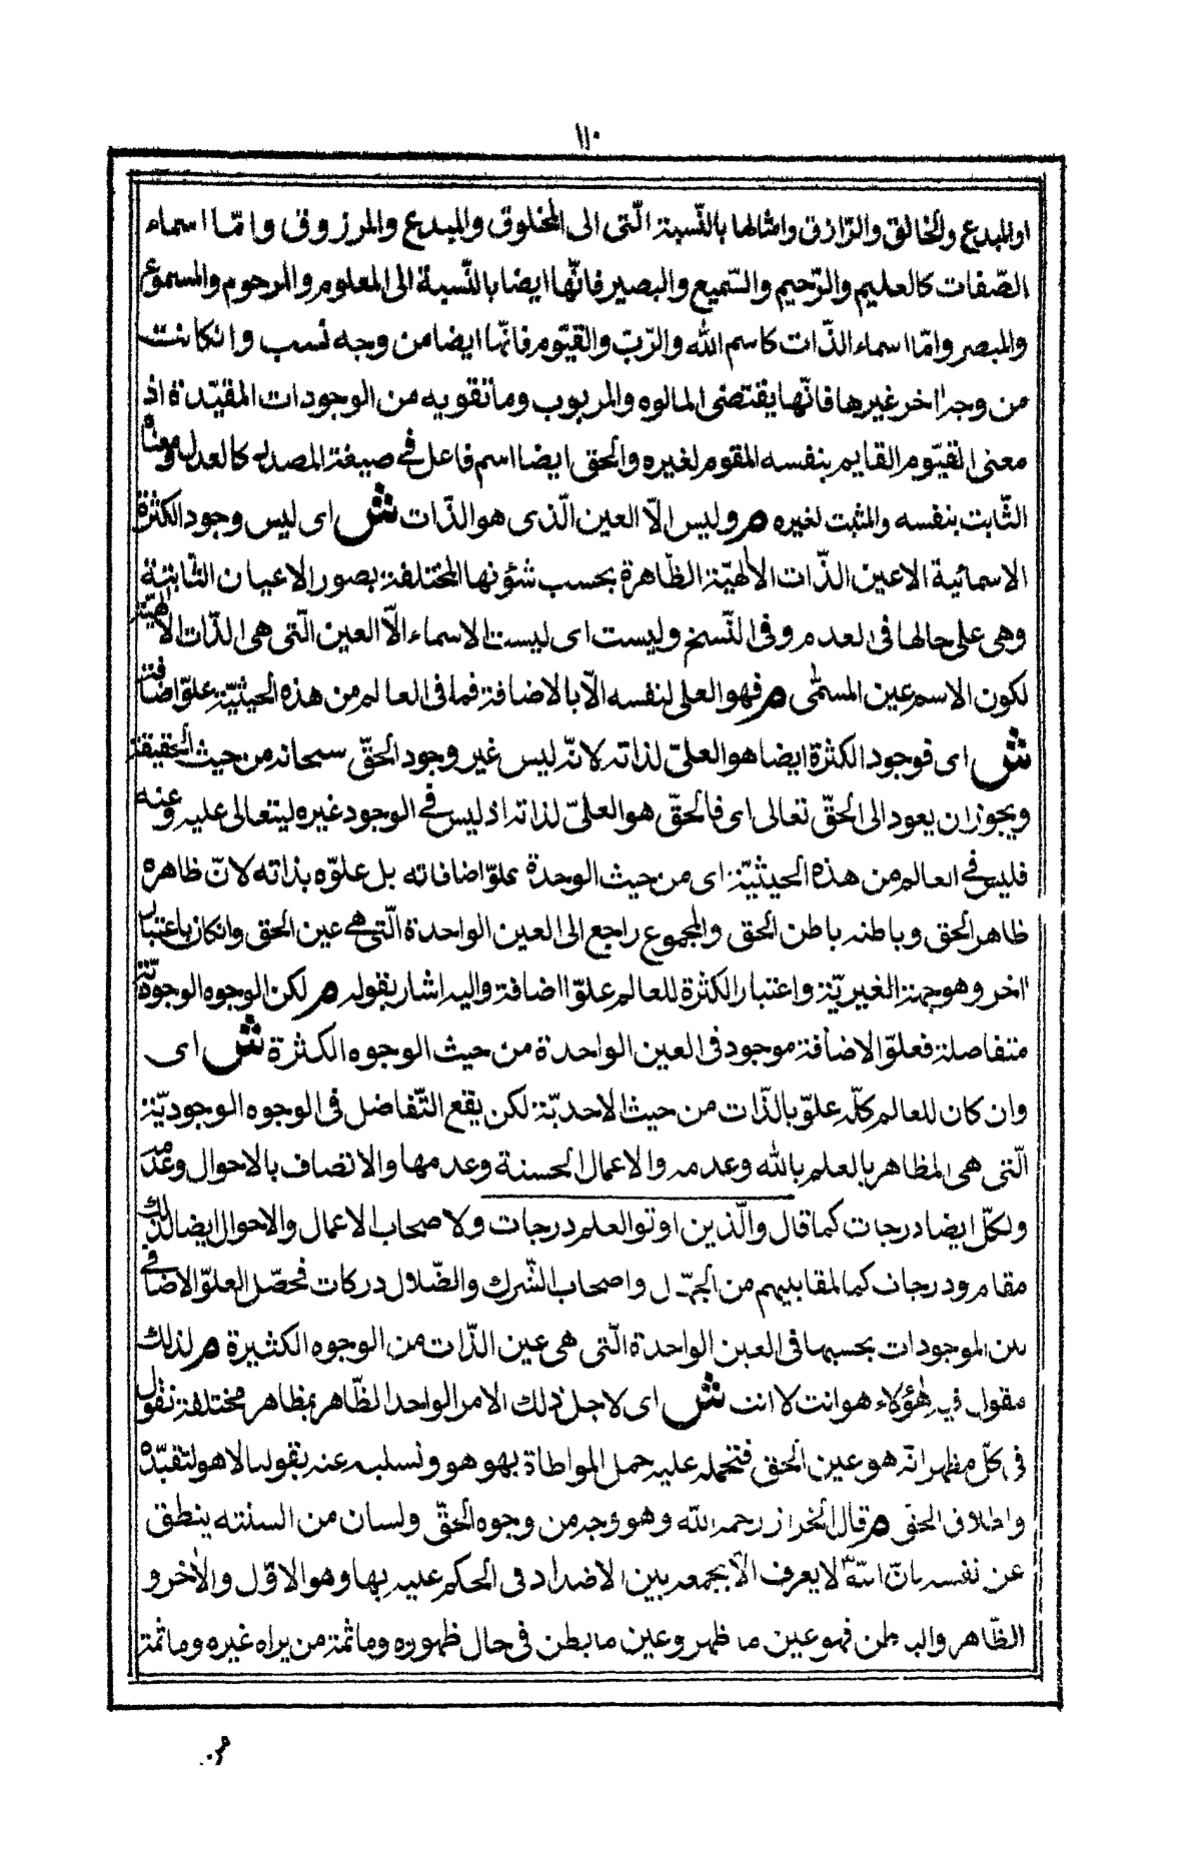 ١١٠
او المبدع والخالق والرّازق وامثالها بالنّسبة الّتى الى المخلوق والمبدع والمرزوق وامّا اسماء
الصّفات كالعليم والرّحيم والسّميع والبصير فانّها ايضا بالنّسبة الى المعلوم والمرحوم والمسموع
والمبصر وامّا اسماء الذّات كاسم الله والرّبّ والقيّوم فانّها ايضا من وجه نسب وان كانت
من وجه اخر غيرها فانّها يقتضى المالوه والمربوب وما تقوّيه من الوجودات المقيّدة اذ
معنى القيّوم القايم بنفسه المقوم لغيره والحق ايضا اسم فاعل فى صيغة المصدر كالعدل ومعناه
الثّابت بنفسه والمثبت لغيره م وليس الّا العين الّذى هو الذّات ش اى ليس وجود الكثرة
الاسمائية الا عين الذّات الالهيّة الظّاهرة بحسب شؤنها المختلفة بصور الاعيان الثّابتة
وهى على حالها فى العدم وفى النّسخ وليست اى ليست الاسماء الّا العين الّتى هى الذّات الالهيّة
لكون الاسم عين المسمّى م فهو العلى لنفسه الّا بالاضافة فما فى العالم من هذه الحيثيّة علوّ اضافة
ش اى فوجود الكثرة ايضا هو العلىّ لذاته لانّه ليس غير وجود الحقّ سبحانه من حيث الحقيقة
ويجوز ان يعود الى الحقّ تعالى اى فالحقّ هو العلىّ لذاته اذ ليس فى الوجود غيره ليتعالى عليه وعنه
فليس فى العالم من هذه الحيثيّة اى من حيث الوحدة علوّ اضافاته بل علوّه بذاته لانّ ظاهره
ظاهر الحق وباطنه باطن الحق والمجموع راجع الى العين الواحدة الّتى هى عين الحق وان كان باعتبار
اخر وهو جهة الغيريّة واعتبار الكثرة للعالم علوّ اضافة واليه اشار بقوله م لكن الوجوه الوجوديّة
متفاصلة فعلوّ الاضافة موجود فى العين الواحدة من حيث الوجوه الكثرة ش اى
وان كان للعالم كلّه علوّ بالذّات من حيث الاحديّة لكن يقع التّفاضل فى الوجوه الوجوديّة
الّتى هى المظاهر بالعلم بالله وعدمه والاعمال الحسنة وعدمها والاتصاف بالاحوال وعدمه
ولكلّ ايضا درجات كما قال والّذين اوتو العلم درجات ولاصحاب الاعمال والاحوال ايضا كذلك
مقام ودرجات كما لمقابيهم من الجهّـل واصحاب الشّرك والضّلال دركات فحصّل العلوّ الاضافى
بين الموجودات بحسبها فى العين الواحدة الّتى هى عين الذّات من الوجوه الكثيرة م لذلك
مقول فيه هؤلاء هو انت لا انت ش اى لاجل ذلك الامر الواحد الظّاهر بمظاهر مختلفة نقول
فى كلّ مظهر انّه هو عين الحق فتحمله عليه حمل المواطاة بهو هو ونسلبه عنه بقولنا لا هو لتقيّده
واطلاق الحق م قال الخراز رحمه الله وهو وجه من وجوه الحقّ ولسان من السنته ينطق
عن نفسه بانّ الله لا يعرف الّا بجمعه بين الاضداد فى الحكم عليه بها وهو الاوّل والاخر و
الظّاهر والباطن فهو عين ما ظهر وعين ما بطن فى حال ظهوره وما ثمّة من يراه غيره وما ثمّة
من